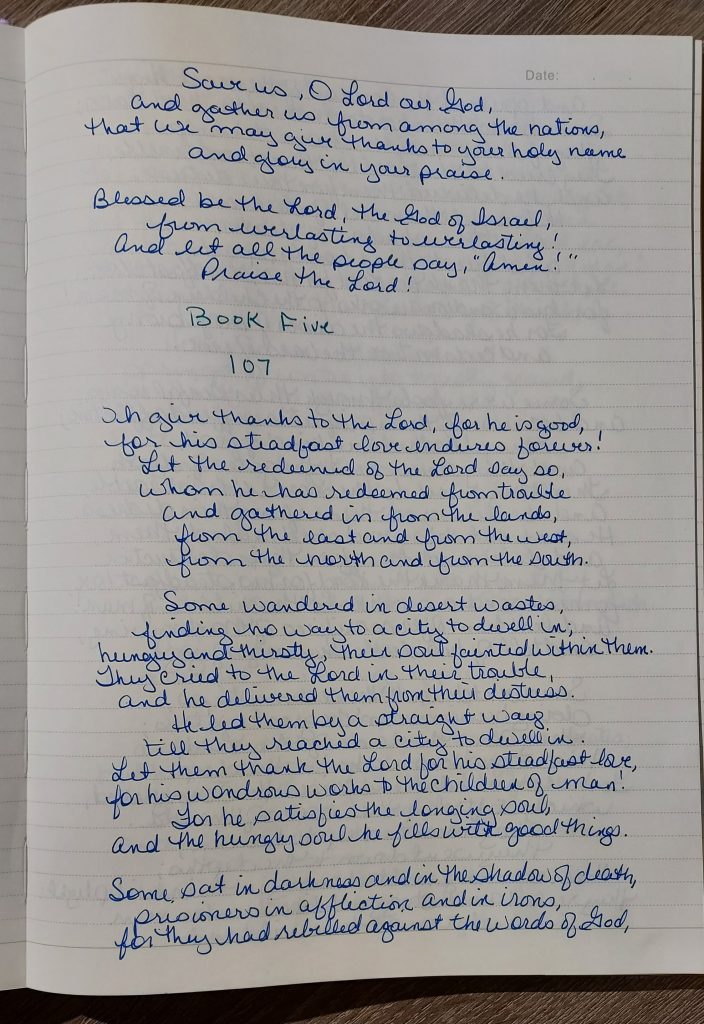 Date:
Save us, O Lord our God,
and gather us from among the nations,
that we may give thanks to your holy name
and glory in your praise.
Blessed be the Lord, the God of Israel,
from everlasting to everlasting!
And let all the people say, "Amen!"
Praise the Lord!
Book Five
107
Oh give thanks to the Lord, for he is good,
for his steadfast love endures forever!
Let the redeemed of the Lord say so,
whom he has redeemed from trouble
and gathered in from the lands,
from the east and from the west,
from the north and from the south.
Some wandered in desert wastes,
finding no way to a city to dwell in;
hungry and thirsty, their soul fainted within them.
They cried to the Lord in their trouble,
and he delivered them from their distress.
He led them by a straight way
till they reached a city to dwell in.
Let them thank the Lord for his steadfast love,
for his wondrous works to the children of man!
For he satisfies the longing soul,
and the hungry soul he fills with good things.
Some sat in darkness and in the shadow of death,
prisioners in affliction and in irons,
for they had rebelled against the words of God,